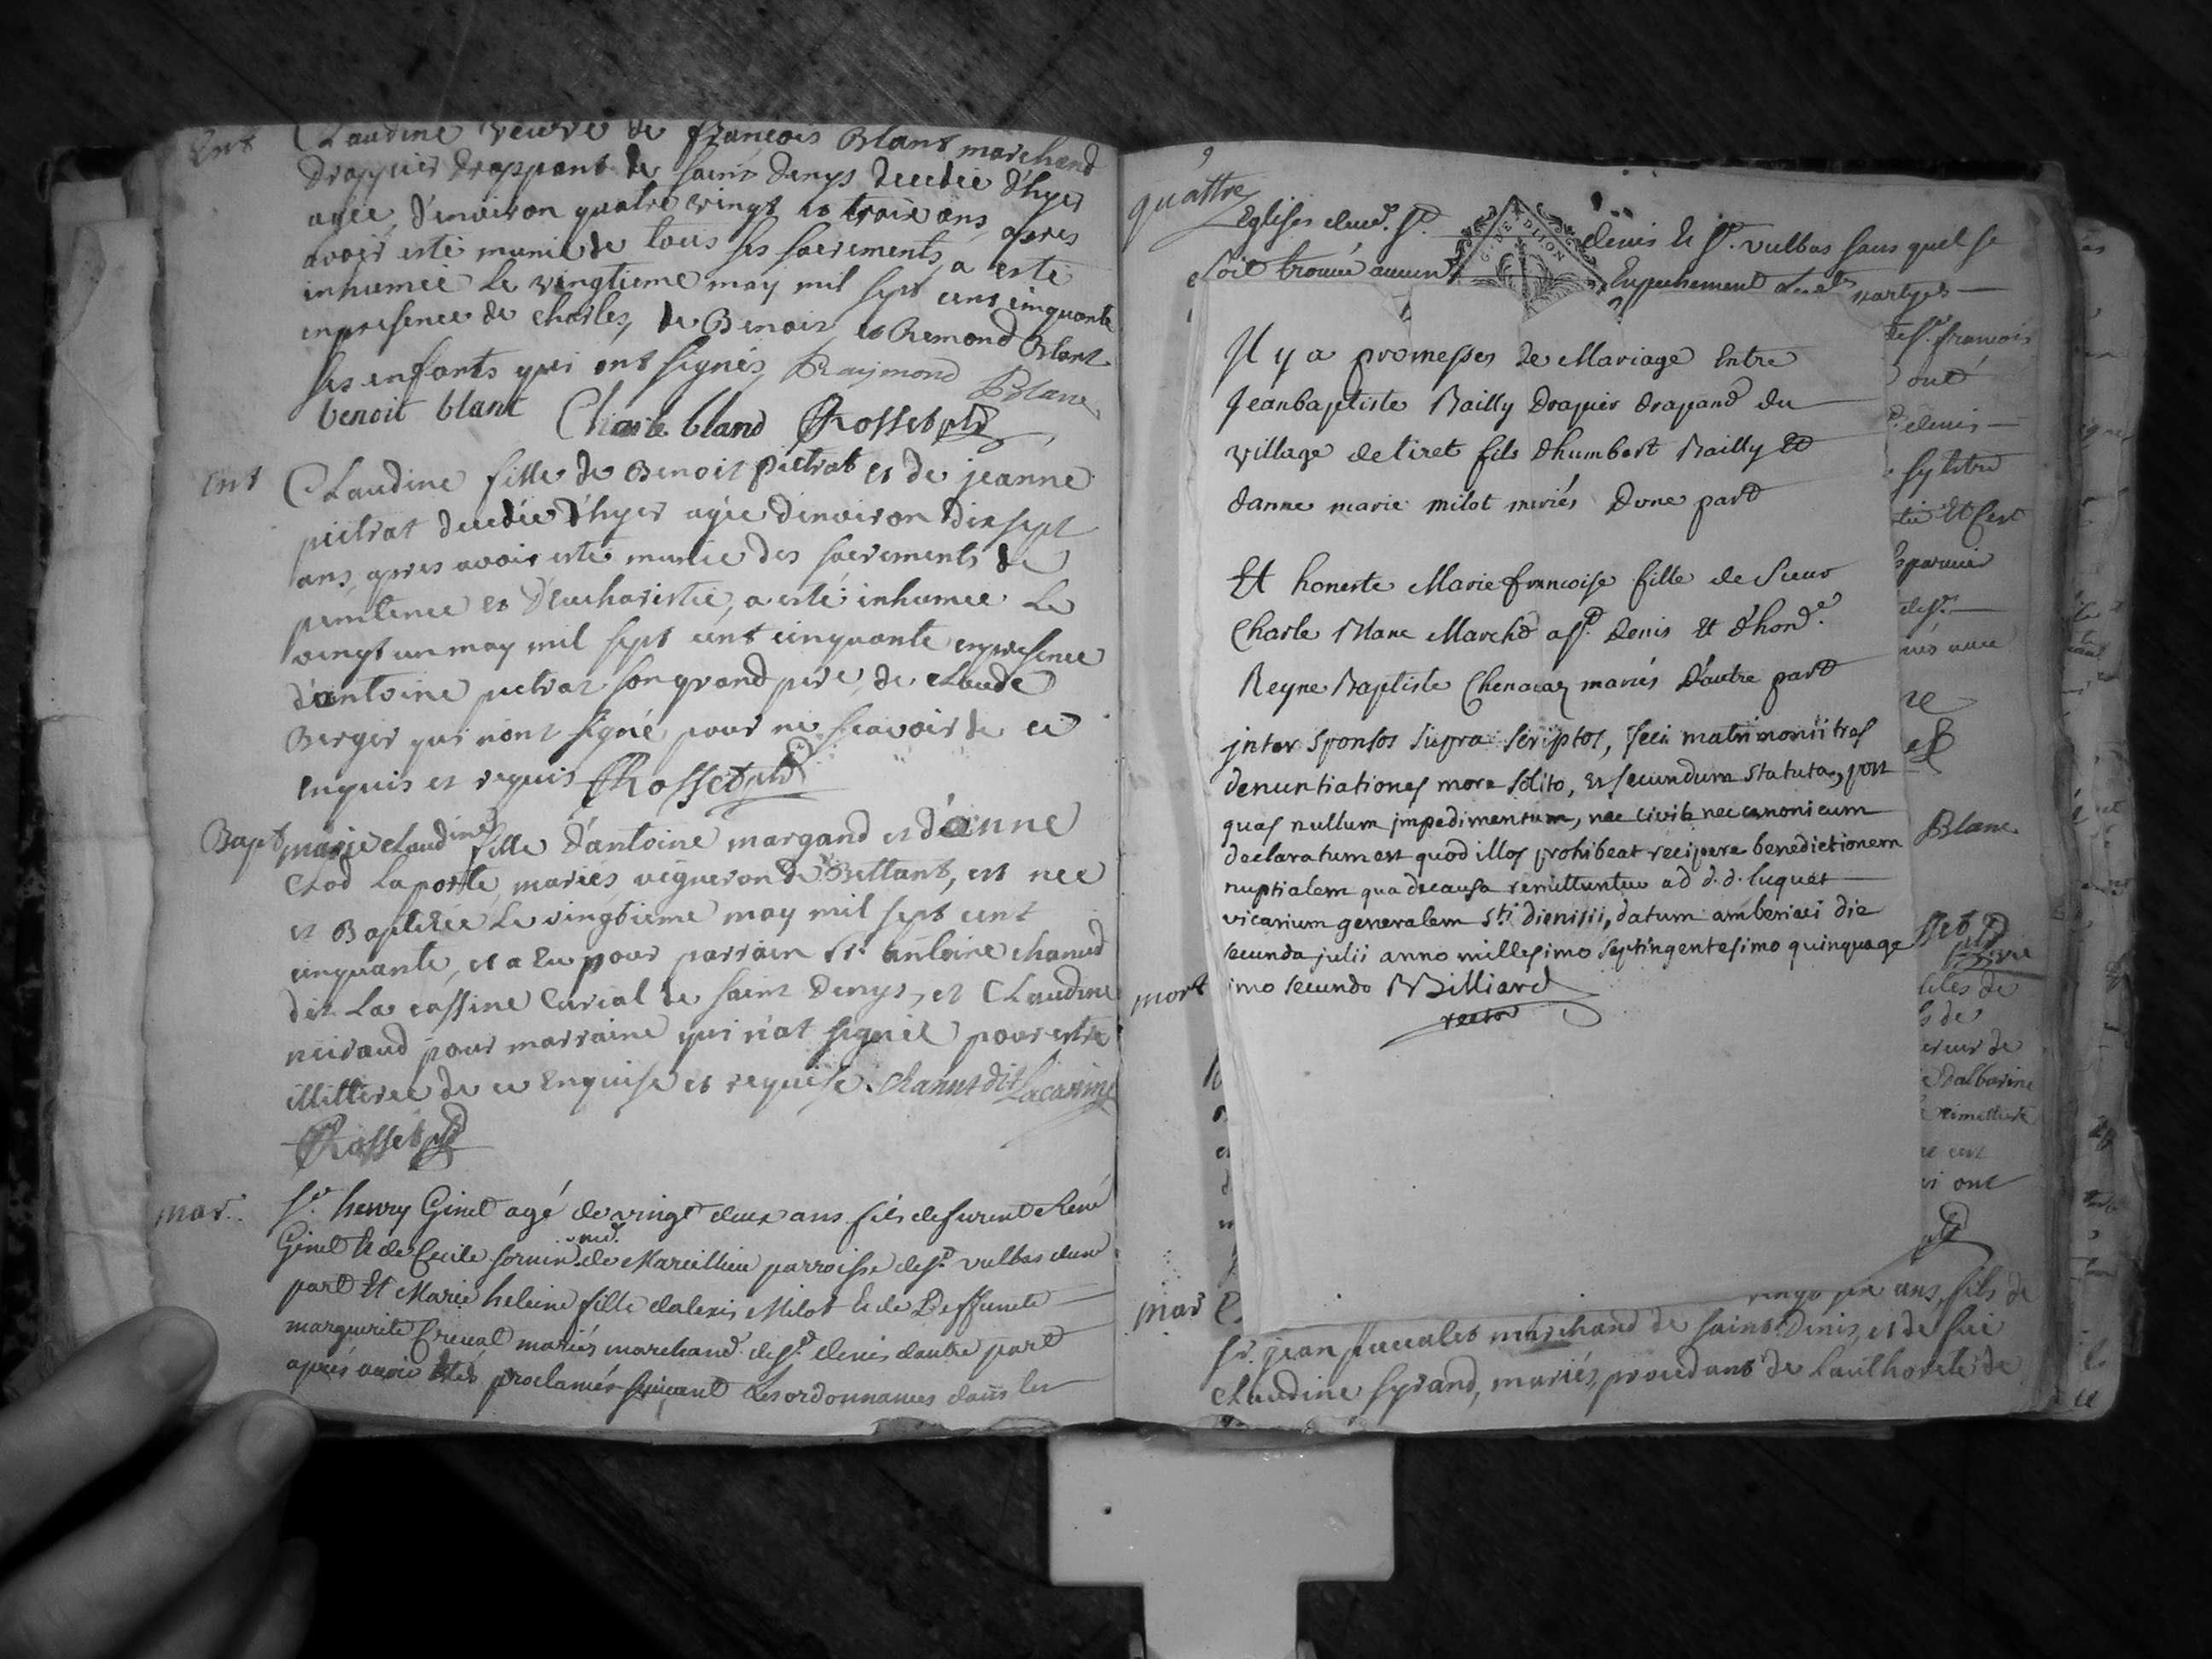 Ent Claudine veuve de francois Blant marchand
drappier drappant de saint Denys decedée d'hyer
agée, d'environ quatre vingt et troix ans apres
avoir esté munie de tous ses sacrements, a esté
inhumée le vingtieme may mil sept cent cinquante
en presence de charles, de Benoit et Remond Blant
ses enfants qui ont signés, Raymond Blanc
benoit blant Charle bland Rosset
Ent Claudine fille de Benoit pictrat et de jeanne
pictrat decedée d'hyer agée d'environ dix sept
ans, apres avoir esté munie des sacrements de
penitence et d'eucharistie, a esté inhumee le
vingt un may mil sept cent cinquante en presence
d'antoine pictrat son grand pere, de claude
Berger qui n'ont signé pour ne scavoir de ce
enquis et requis Rosset
Bapt marie claudine fille d'antoine margand et d'anne
Clod laporte, mariés, vigneron de Bettant, est nee
et Baptizée le vingtieme may mil sept cent
cinquante, et a eu pour parrain Sr. antoine chanud
dit la cassine curial de saint Denys, et Claudine
neiraud pour marraine qui n'at signée pour estre
illitteree de ce enquise et requise. chanut dit Lacassine
Rosset
mar. Sr. henry Ginet agé de vingt deux ans fils defunt René
Ginet et de Cecile de Marcillieu parroisse de St. vulbas dune
part Et Marie heleine fille dalexis Milot et de Deffuncte
marguerite Creuat mariés marchand de St. denis dautre part
aprés avoir estés proclamés suivant les ordonnances dans les
9
quattre
Eglises St. denis et St. vulbas sans quel se
soit trouvé aucun Empechement partyes
G. DE DIJON
Il y a promesses de Mariage Entre
Jeanbaptiste Bailly Drapier drapand du
village de tiret fils dhumbert Bailly et
danne marie milot mariés Dune part
Et honeste Marie francoise fille de Sieur
Charle Blanc Marchd a St. Denis Et d'hond.e
Reyne Baptiste Chenavaz mariés D'autre part
inter sponsos supra scriptos, feci matrimonii tres
denuntiationes more solito, et secundum statuta, post
quas nullum impedimentum, nec civile nec canonicum
declaratum est quod illos prohibeat recipere benedictionem
nuptialem qua de causa remittuntur ad d. d. luquet
vicarium generalem sti dionisii, datum amberiaci die
secunda julii anno millesimo septingentesimo quinquage
imo secundo Billiard
rector
de St. francois
ont
denis
Blanc
mort
mar
ans, fils de
Sr. jean marchand de saint Denis, et de
Claudine Syrand, mariés, procedant de lauthorité de